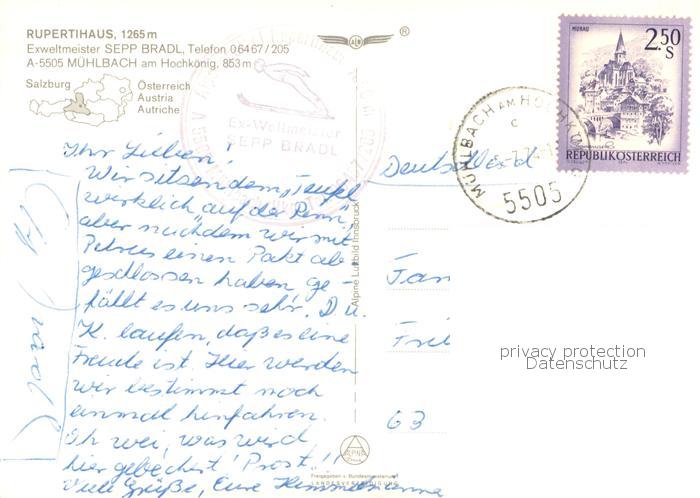 RUPERTIHAUS, 1265 m
Exweltmeister SEPP BRADL, Telefon 0 64 67 / 205
A-5505 MÜHLBACH am Hochkönig, 853 m
Salzburg
Österreich
Austria
Autriche
®
Ex-Weltmeister
SEPP BRADL
MURAU
2.50
S
REPUBLIK ÖSTERREICH
MÜHLBACH AM HOCHKÖNIG
c
5505
Ihr Lieben!
Wir sitzen dem „Teufel
wirklich auf der Penn",
aber nachdem wir mit
Petrus einen Pakt ab
geschlossen haben ge-
fällt es uns sehr. D. u.
K. laufen, daß es eine
Freude ist. Hier werden
wir bestimmt noch
einmal hinfahren.
Oh wei, was wird
hier gebechert! Prost!!
Viele Grüße, Eure
Deutschland
Fam
63
Alpine Luftbild Innsbruck
privacy protection
Datenschutz
Freigegeben v. Bundesministerium f.
LANDESVERTEIDIGUNG